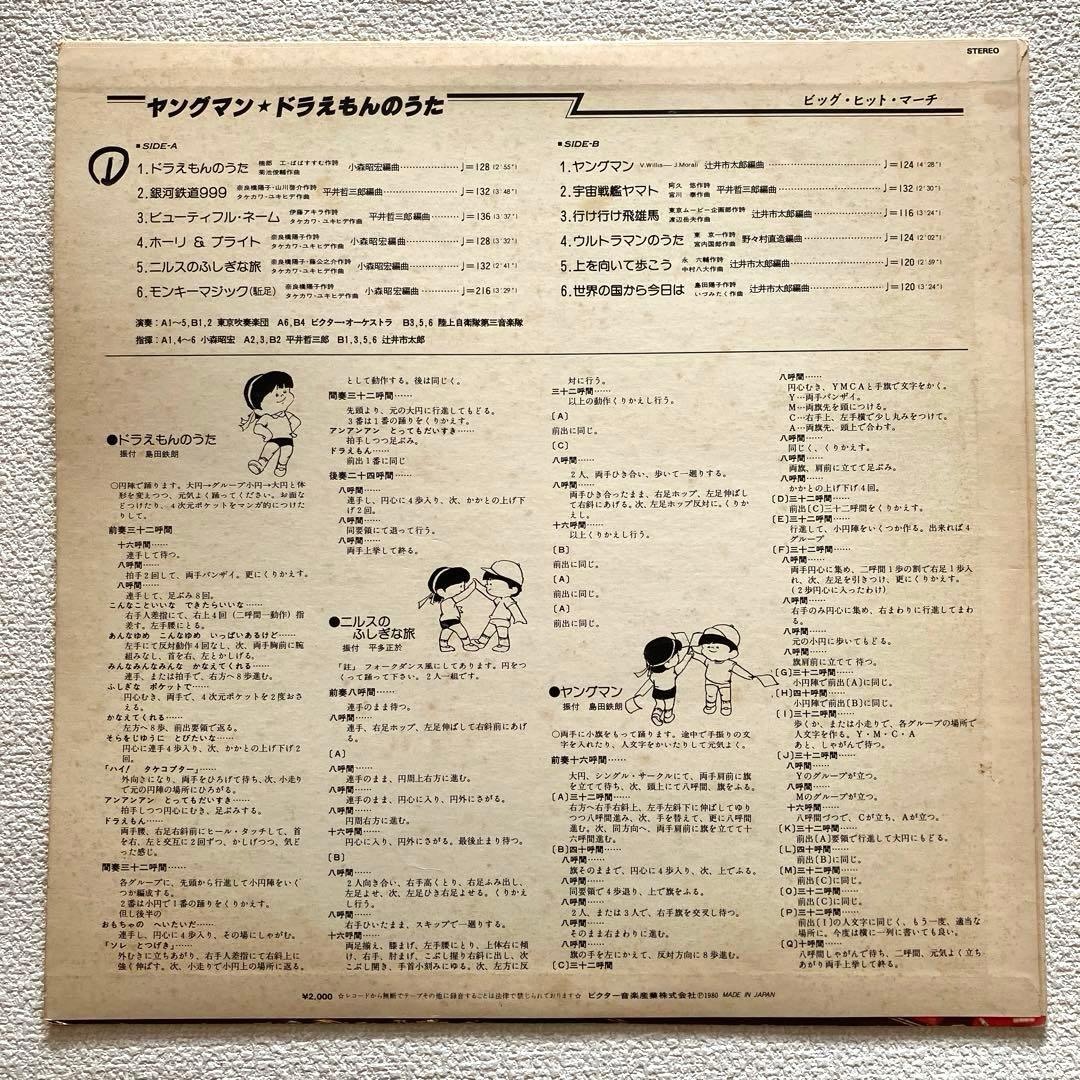 STEREO
ヤングマン★ドラえもんのうた
ビッグ・ヒット・マーチ
①
■SIDE-A
1.ドラえもんのうた 楠部 工・ばばすすむ作詩 菊池俊輔作曲 小森昭宏編曲……………♩=128(2′55″)
2.銀河鉄道999 奈良橋陽子・山川啓介作詩 タケカワ・ユキヒデ作曲 平井哲三郎編曲……………♩=132(3′48″)
3.ビューティフル・ネーム 伊藤アキラ作詩 タケカワ・ユキヒデ作曲 平井哲三郎編曲……………♩=136(3′37″)
4.ホーリ & ブライト 奈良橋陽子作詩 タケカワ・ユキヒデ作曲 小森昭宏編曲……………♩=128(3′32″)
5.ニルスのふしぎな旅 奈良橋陽子・藤公之介作詩 タケカワ・ユキヒデ作曲 小森昭宏編曲……………♩=132(2′41″)
6.モンキーマジック(駈足) 奈良橋陽子作詩 タケカワ・ユキヒデ作曲 小森昭宏編曲……………♩=216(3′29″)
■SIDE-B
1.ヤングマン V.Willis—J.Morali 辻井市太郎編曲……………♩=124(4′28″)
2.宇宙戦艦ヤマト 阿久 悠作詩 宮川 泰作曲 平井哲三郎編曲……………♩=132(2′30″)
3.行け行け飛雄馬 東京ムービー企画部作詩 渡辺岳夫作曲 辻井市太郎編曲……………♩=116(3′24″)
4.ウルトラマンのうた 東 京一作詩 宮内国郎作曲 野々村直造編曲……………♩=124(2′02″)
5.上を向いて歩こう 永 六輔作詩 中村八大作曲 辻井市太郎編曲……………♩=120(2′59″)
6.世界の国から今日は 島田陽子作詩 いづみたく作曲 辻井市太郎編曲……………♩=120(3′24″)
演奏:A1〜5,B1,2 東京吹奏楽団 A6,B4 ビクター・オーケストラ B3,5,6 陸上自衛隊第三音楽隊
指揮:A1,4〜6 小森昭宏 A2,3,B2 平井哲三郎 B1,3,5,6 辻井市太郎
●ドラえもんのうた
振付 島田鉄朗
○円陣で踊ります。大円→グループ小円→大円と体
形を変えつつ、元気よく踊ってください。お面な
どつけたり、4次元ポケットをマンガ的につけた
りして。
前奏三十二呼間
十六呼間……
連手して待つ。
八呼間……
拍手2回して、両手バンザイ。更にくりかえす。
八呼間……
連手して、足ぶみ8回。
こんなこといいな できたらいいな……
右手人差指にて、右上4回(二呼間一動作)指
差す。左手腰にとる。
あんなゆめ こんなゆめ いっぱいあるけど……
左手にて反対動作4回なし、次、両手胸前に腕
組みなし、首を右、左とかしげる。
みんなみんなみんな かなえてくれる……
連手、または拍手で、右方へ8歩進む。
ふしぎな ポケットで……
円心むき、両手で、4次元ポケットを2度おさ
える。
かなえてくれる……
左方へ8歩、前出要領で返る。
そらをじゆうに とびたいな……
円心に連手4歩入り、次、かかとの上げ下げ2
回。
「ハイ! タケコプター」……
外向きになり、両手をひろげて待ち、次、小走り
で元の円陣の場所にひろがる。
アンアンアン とってもだいすき……
拍手しつつ円心にむき、足ぶみする。
ドラえもん……
両手腰、右足右斜前にヒール・タッチして、首
を右、左と交互に2回ずつ、かしげつつ、気ど
った感じ。
間奏三十二呼間……
各グループに、先頭から行進して小円陣をいく
つか編成する。
2番は小円で1番の踊りをくりかえす。
但し後半の
おもちゃの へいたいだ……
連手し、円心に4歩入り、その場にしゃがむ。
「ソレ とつげき」……
外むきに立ちあがり、右手人差指にて右斜上に
強く伸ばす。次、小走りで小円上の場所に返る。
として動作する。後は同じく。
間奏三十二呼間……
先頭より、元の大円に行進してもどる。
3番は1番の踊りをくりかす。
アンアンアン とってもだいすき……
拍手しつつ足ぶみ。
ドラえもん……
前出1番に同じ
後奏二十四呼間……
八呼間……
連手し、円心に4歩入り、次、かかとの上げ下
げ2回。
八呼間……
同要領にて退って行う。
八呼間……
両手上挙して終る。
●ニルスの
ふしぎな旅
振付 平多正於
「註」フォークダンス風にしてあります。円をつ
くって踊って下さい。2人一組です。
前奏八呼間……
連手のまま待つ。
八呼間……
連手、右足ホップ、左足伸ばして右斜前にあげ
る。
〔A〕
八呼間……
連手のまま、円周上右方に進む。
八呼間……
連手のまま、円心に入り、円外にさがる。
八呼間……
円周右方に進む。
十六呼間……
円心に入り、円外にさがる。最後止まり待つ。
〔B〕
八呼間……
2人向き合い、右手高くとり、右足ふみ出し、
左足よせ、次、左足ひき右足よせる。くりかえ
し行う。
八呼間……
右手ひいたまま、スキップで一廻りする。
十六呼間……
両足揃え、膝まげ、左手腰にとり、上体右に傾
け、右手、肘まげ、こぶし握り右斜に出し、次
こぶし開き、手首小刻みにゆる。次、左方に反
対に行う。
三十二呼間……
以上の動作くりかえし行う。
〔A〕
前出に同じ。
〔C〕
八呼間……
2人、両手ひき合い、歩いて一廻りする。
八呼間……
両手ひき合ったまま、右足ホップ、左足伸ばし
て右斜にあげる。次、左足ホップ反対に。くりか
えし。
十六呼間……
以上くりかえし行う。
〔B〕
前出に同じ。
〔A〕
前出に同じ。
〔A〕
前出に同じ。
●ヤングマン
振付 島田鉄朗
○両手に小旗をもって踊ります。途中で手振りの文
字を入れたり、人文字をかいたりして元気よく。
前奏十六呼間……
大円、シングル・サークルにて、両手肩前に旗
を立てて待ち、次、頭上にて八呼間、旗をふる。
〔A〕三十二呼間……
右方へ右手右斜上、左手左斜下に伸ばしてゆり
つつ八呼間進み、次、手を替えて、更に八呼間
進む。次、同方向へ、両手肩前に旗を立てて十
六呼間進む。
〔B〕四十呼間……
八呼間……
旗そのままで、円心に4歩入り、次、上でふる。
八呼間……
同要領で4歩退り、上で旗をふる。
八呼間……
2人、または3人で、右手旗を交叉し待つ。
八呼間……
そのまま右まわりに進む。
八呼間……
旗の手を左にかえて、反対方向に8歩進む。
〔C〕三十二呼間……
八呼間……
円心むき、YMCAと手旗で文字をかく。
Y…両手バンザイ。
M…両旗先を頭につける。
C…右手上、左手横で少し丸みをつけて。
A…両旗先、頭上で合わす。
八呼間……
同じく、くりかえす。
八呼間……
両旗、肩前に立てて足ぶみ。
八呼間……
かかとの上げ下げ4回。
〔D〕三十二呼間……
前出〔C〕三十二呼間をくりかえす。
〔E〕三十二呼間……
行進して、小円陣をいくつか作る。出来れば4
グループ
〔F〕三十二呼間……
八呼間……
両手円心に集め、二呼間1歩の割で右足1歩入
れ、次、左足を引きつけ、更にくりかえす。
(2歩円心に入ったわけ)
八呼間……
右手のみ円心に集め、右まわりに行進してまわ
る。
八呼間……
元の小円に歩いてもどる。
八呼間……
旗肩前に立てて 待つ。
〔G〕三十二呼間……
小円陣で前出〔A〕に同じ。
〔H〕四十呼間……
小円陣で前出〔B〕に同じ。
〔I〕三十二呼間……
歩くか、または小走りで、各グループの場所で
人文字を作る。Y・M・C・A
あと、しゃがんで待つ。
〔J〕三十二呼間……
八呼間……
Yのグループが立つ。
八呼間……
Mのグループが立つ。
十六呼間……
八呼間づつで、Cが立ち、Aが立つ。
〔K〕三十二呼間……
前出〔A〕要領で行進して大円にもどる。
〔L〕四十呼間……
前出〔B〕に同じ。
〔M〕三十二呼間……
前出〔C〕に同じ。
〔O〕三十二呼間……
前出〔C〕に同じ。
〔P〕三十二呼間……
前出〔I〕の人文字に同じく、もう一度、適当な
場所に。今度は横に一列に書いても良い。
〔Q〕十呼間……
八呼間しゃがんで待ち、二呼間、元気よく立ち
あがり両手上挙して終る。
¥2,000 ☆レコードから無断でテープその他に録音することは法律で禁じられております☆ ビクター音楽産業株式会社Ⓟ1980 MADE IN JAPAN